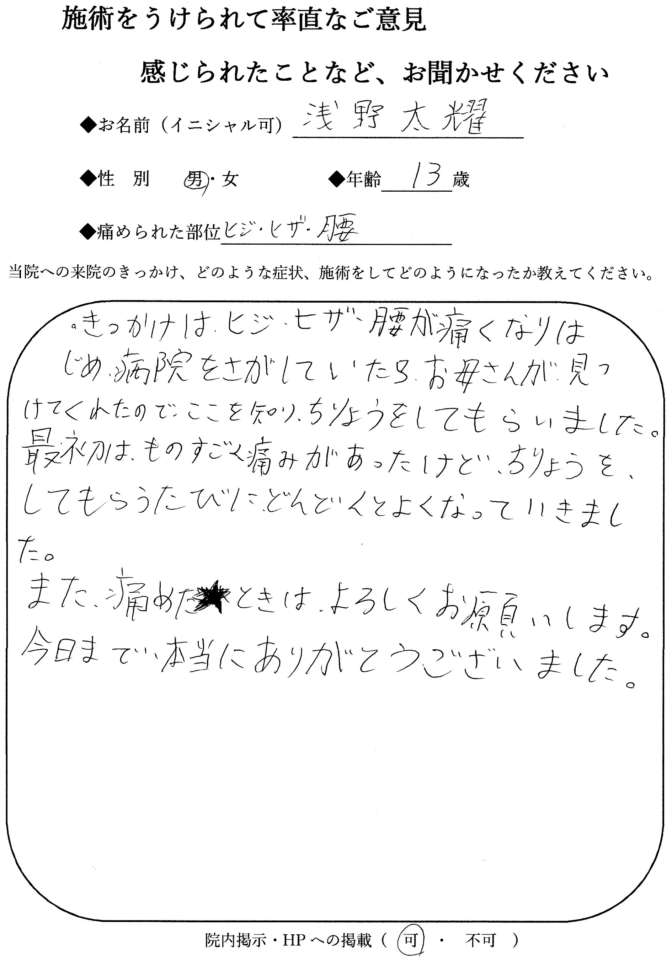 施術をうけられて率直なご意見
感じられたことなど、お聞かせください
◆お名前（イニシャル可） 浅野太耀
◆性　別　男・女　◆年齢 13 歳
◆痛められた部位 ヒジ・ヒザ・腰
当院への来院のきっかけ、どのような症状、施術をしてどのようになったか教えてください。
・きっかけは、ヒジ・ヒザ・腰が痛くなりは
じめ、病院をさがしていたら、お母さんが、見つ
けてくれたので、ここを知り、ちりょうをしてもらいました。
最初は、ものすごく痛みがあったけど、ちりょうを、
してもらうたびに、どんどんとよくなっていきまし
た。
また、痛めたときは、よろしくお願いします。
今日まで、本当にありがとうございました。
院内掲示・HPへの掲載（ 可 ・ 不可 ）